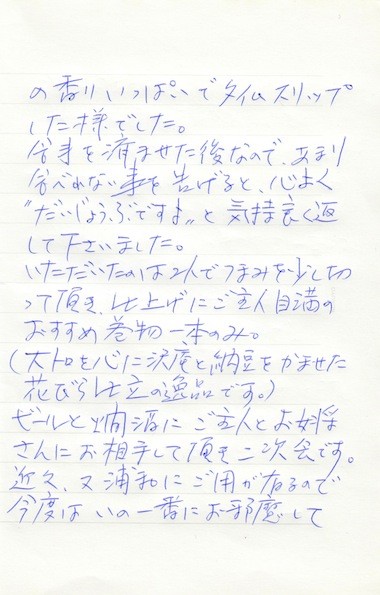 の香りいっぱいでタイムスリップ
した様でした。
食事を済ませた後なので、あまり
食べれない事を告げると、心よく
"だいじょうぶですよ"と気持良く返
して下さいました。
いただいたのは2人でつまみを少し切
って頂き、仕上げにご主人自満の
おすすめ巻物一本のみ。
(大トロを心に沢庵と納豆をかませた
花びら仕立の逸品です。)
ビールと燗酒にご主人とお女将
さんにお相手して頂き二次会です。
近々、又浦和にご用が有るので
今度はいの一番にお邪魔して